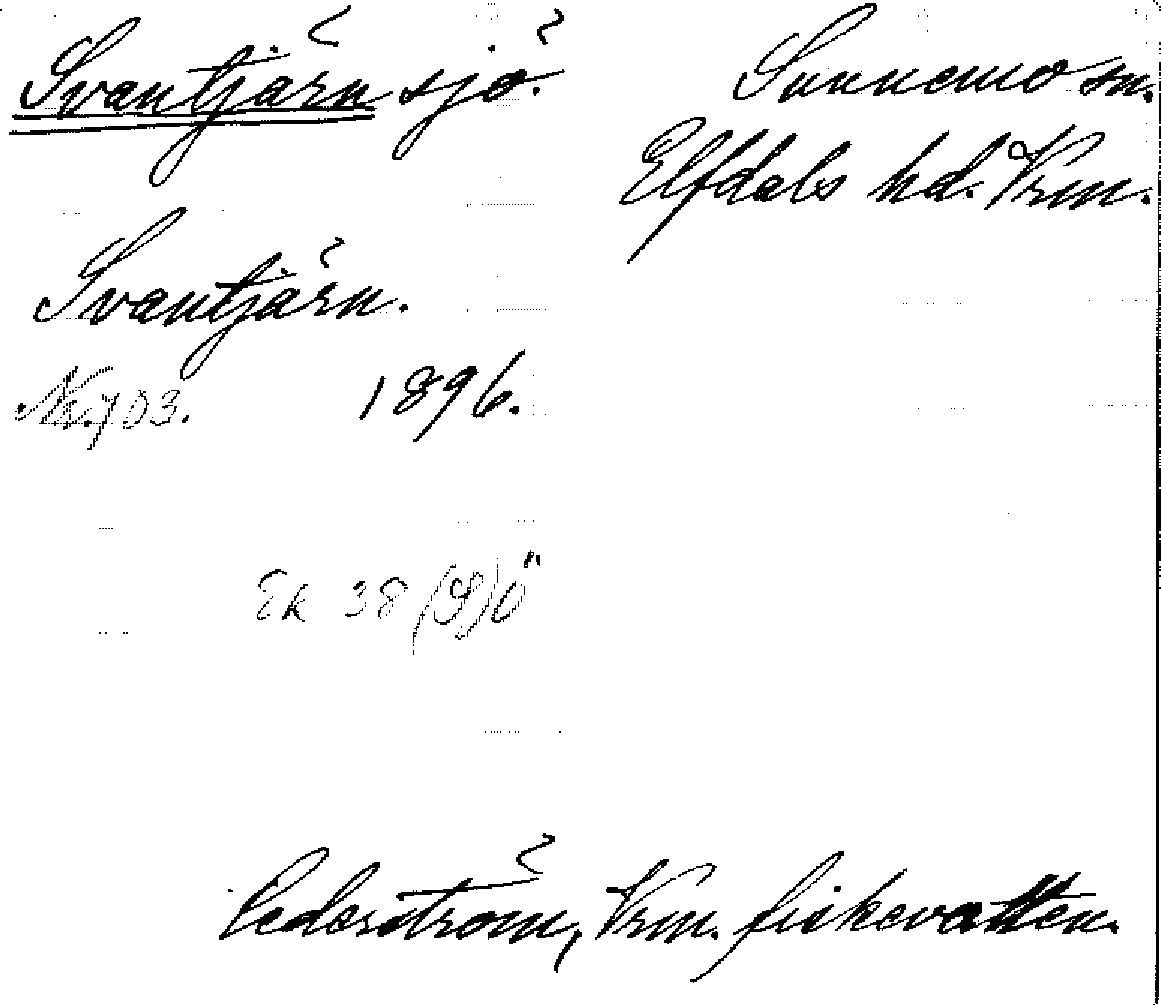 Svantjärn sjö.
Sunnemo sn.
Elfdals hd. Vrm.
Svantjärn.
Nr. 703. 1896.
Ek 38 (S)Ö
Cederström, Vrm. fiskevatten.